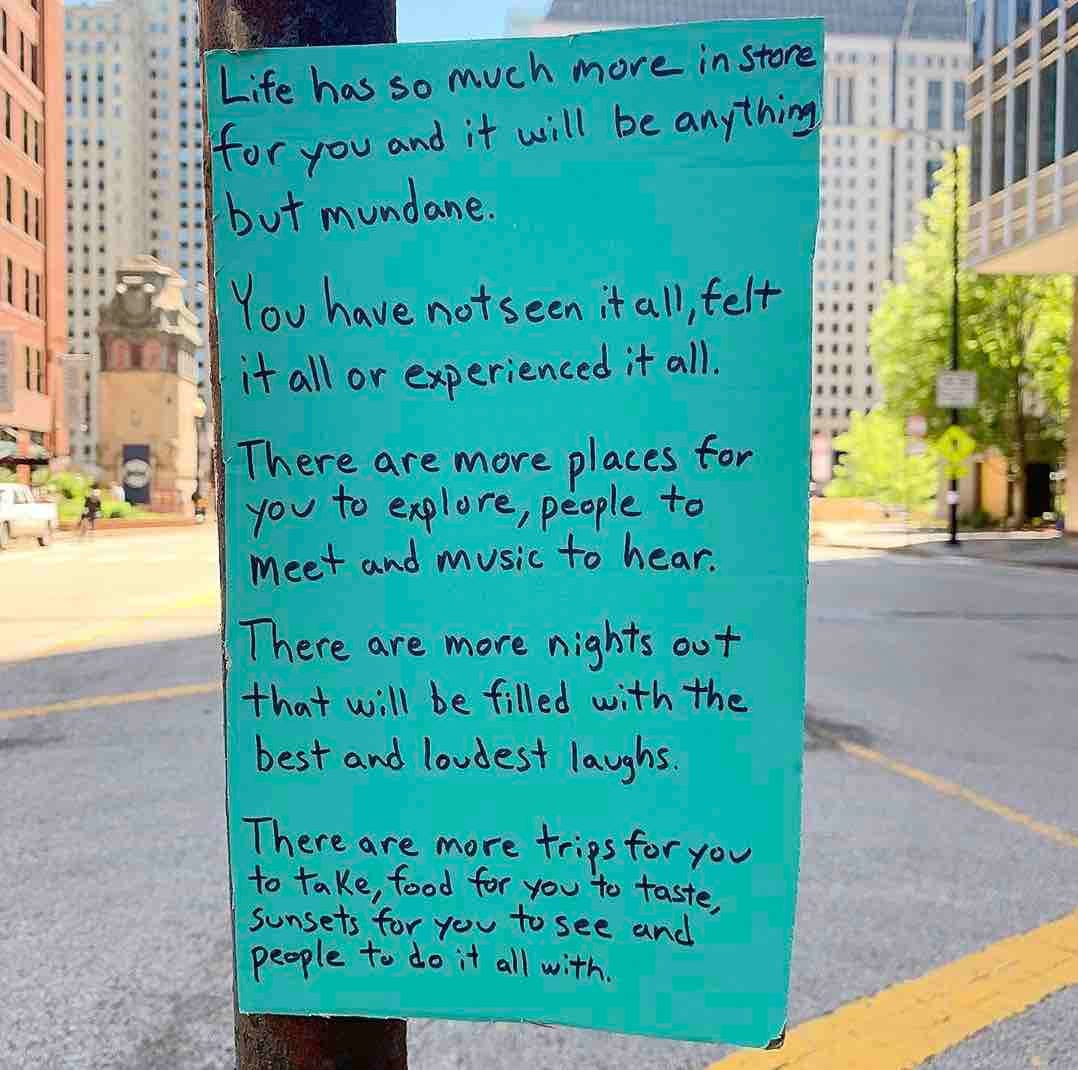 Life has so much more in store
for you and it will be anything
but mundane.
You have not seen it all, felt
it all or experienced it all.
There are more places for
you to explore, people to
meet and music to hear.
There are more nights out
that will be filled with the
best and loudest laughs.
There are more trips for you
to take, food for you to taste,
sunsets for you to see and
people to do it all with.